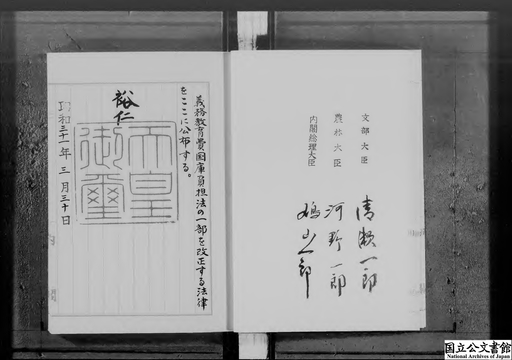 義務教育費国庫負担法の一部を改正する法律
をここに公布する。
裕仁
天皇
御璽
昭和三十一年三月三十日
内閣総理大臣 鳩山一郎
農林大臣 河野一郎
文部大臣 清瀬一郎
国立公文書館
National Archives of Japan